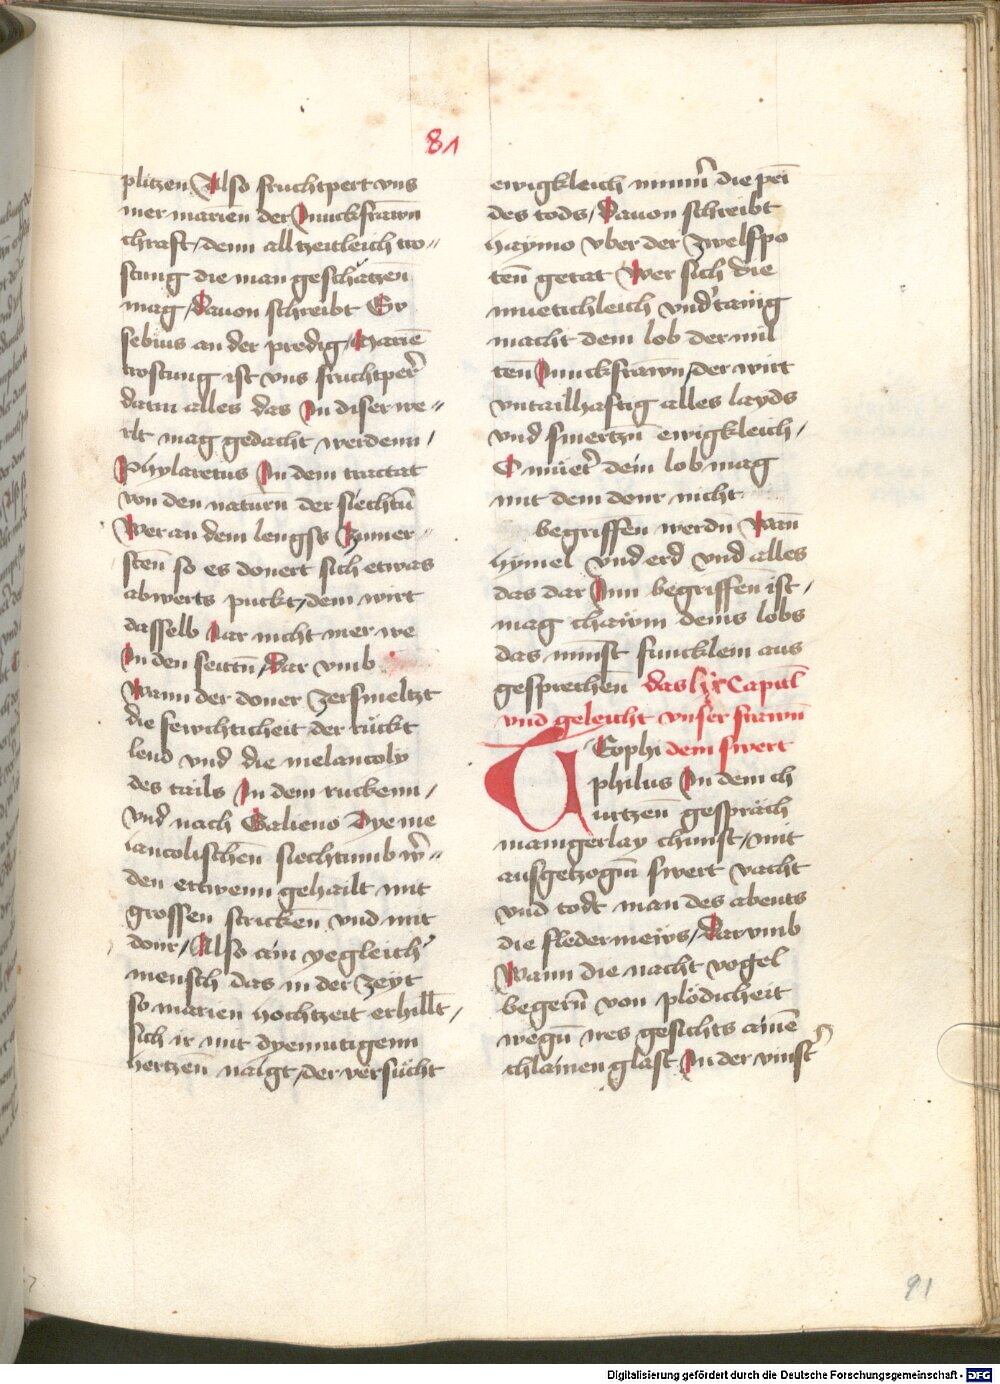 81
plitzen Also fruchtpert vns
mer marien der Junckfrawn
chraft / denn all tzeitleich tro⸗
stung die man geschätzen
mag / dauon schreibt Eu
sebius an der predig / Marie
trostung ist vns fruchtper
dann alles das In diser we⸗
rlt mag gedacht werdenn /
Phylaretus In dem tractat
von den naturn der siechtu̅
Wer an dem lengsς zumer⸗
sten so es donert sich etwas
abwerts puckt / dem wirt
dasselb Iar nicht mer we
In den seittn̅ / dar vmb
Wann der doner zersmeltzt
die fewichticheit der rückt
lend vnd die melancoly
des tails In dem ruckenn /
vnd nach Galieno Dye me
lancolischen̅ siechtumb w̅
den ettwenn gehailt mit
grossen stricken̅ vnd mit
donr / Also ain yegleich
mensch das in der zeyt
so marien hochtzeit erhillt /
sich ir mit dyemutigenn
hertzen̅ naigt / der versücht
ewigkleich nymm̅ die pei̅
des tods / Dauon schreibt
haymo vber der zwelfpo
ten̅ getat Wer sich die
muetichleich vnd̕tänig
macht dem lob der mil
ten̅ Junckfrawn / der wirt
vntailhaftig alles layds
vnd smertzn̅ ewigkleich /
O mueter dein lob mag
mit dem donr nicht
begriffen werdn̅ Wan̅
hymel vnd erd vnd alles
das dar Inn begriffen̅ ist /
mag chawm deins lobs
das mynnst funcklein aus
gesprechen̅ das lxx Capitl
vnd geleicht vnser frawn̅
TEophi dem swert
philus In dem ch
urtzen̅ gespräch
manigerlay chunst / mit
aufgetzogn̅ swert vacht
vnd todt man des abents
die fledermews / darvmb
Wann die nacht vogel
begern̅ von plödicheit
wegn̅ ires gesichts aine̅
chlainen glast In der vinst̕
91
Digitalisierung gefördert durch die Deutsche Forschungsgemeinschaft - DFG